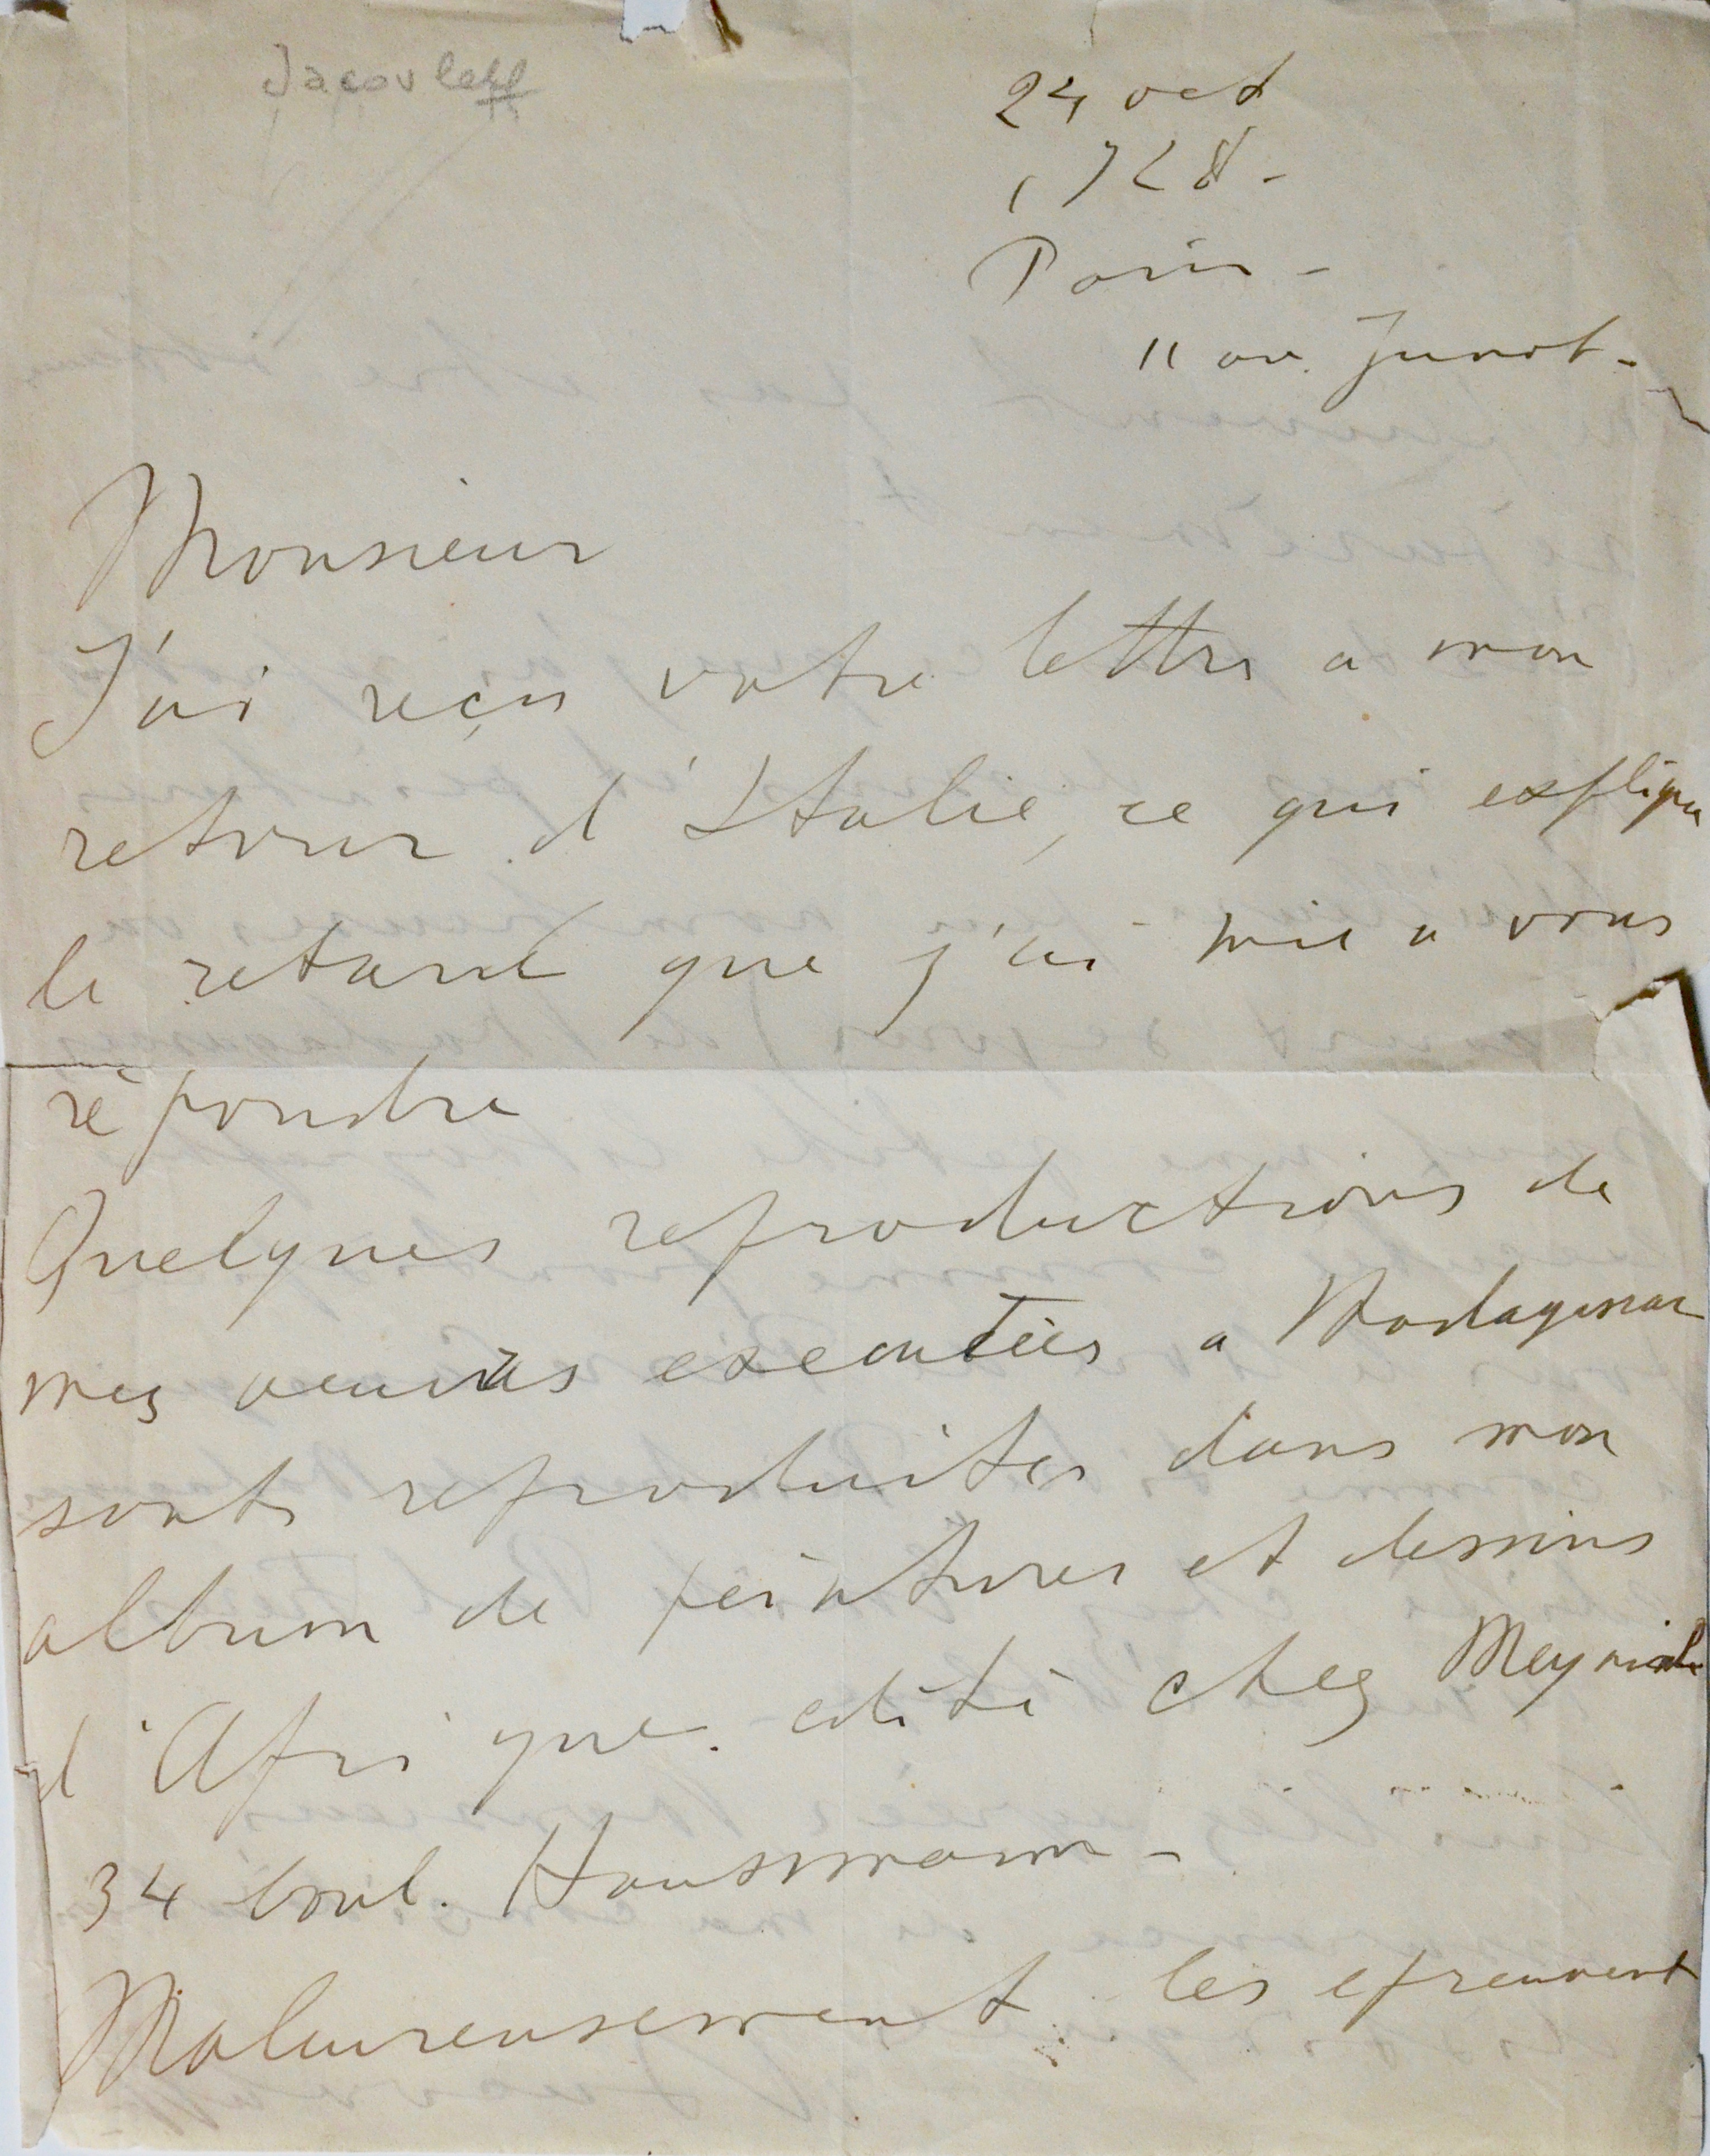 Jacovleff
24 oct
1928 -
Paris -
11 av. Junot -
Monsieur
J'ai reçu votre lettre a mon
retour d'Italie, ce qui explique
le retard que j'ai mis a vous
répondre
Quelques reproductions de
mes oeuvres executées a Madagascar
sont reproduites dans mon
album de peintures et dessins
d'Afrique. edité chez Meynial
34 boul. Haussmann -
Maleureusement les epreuvent